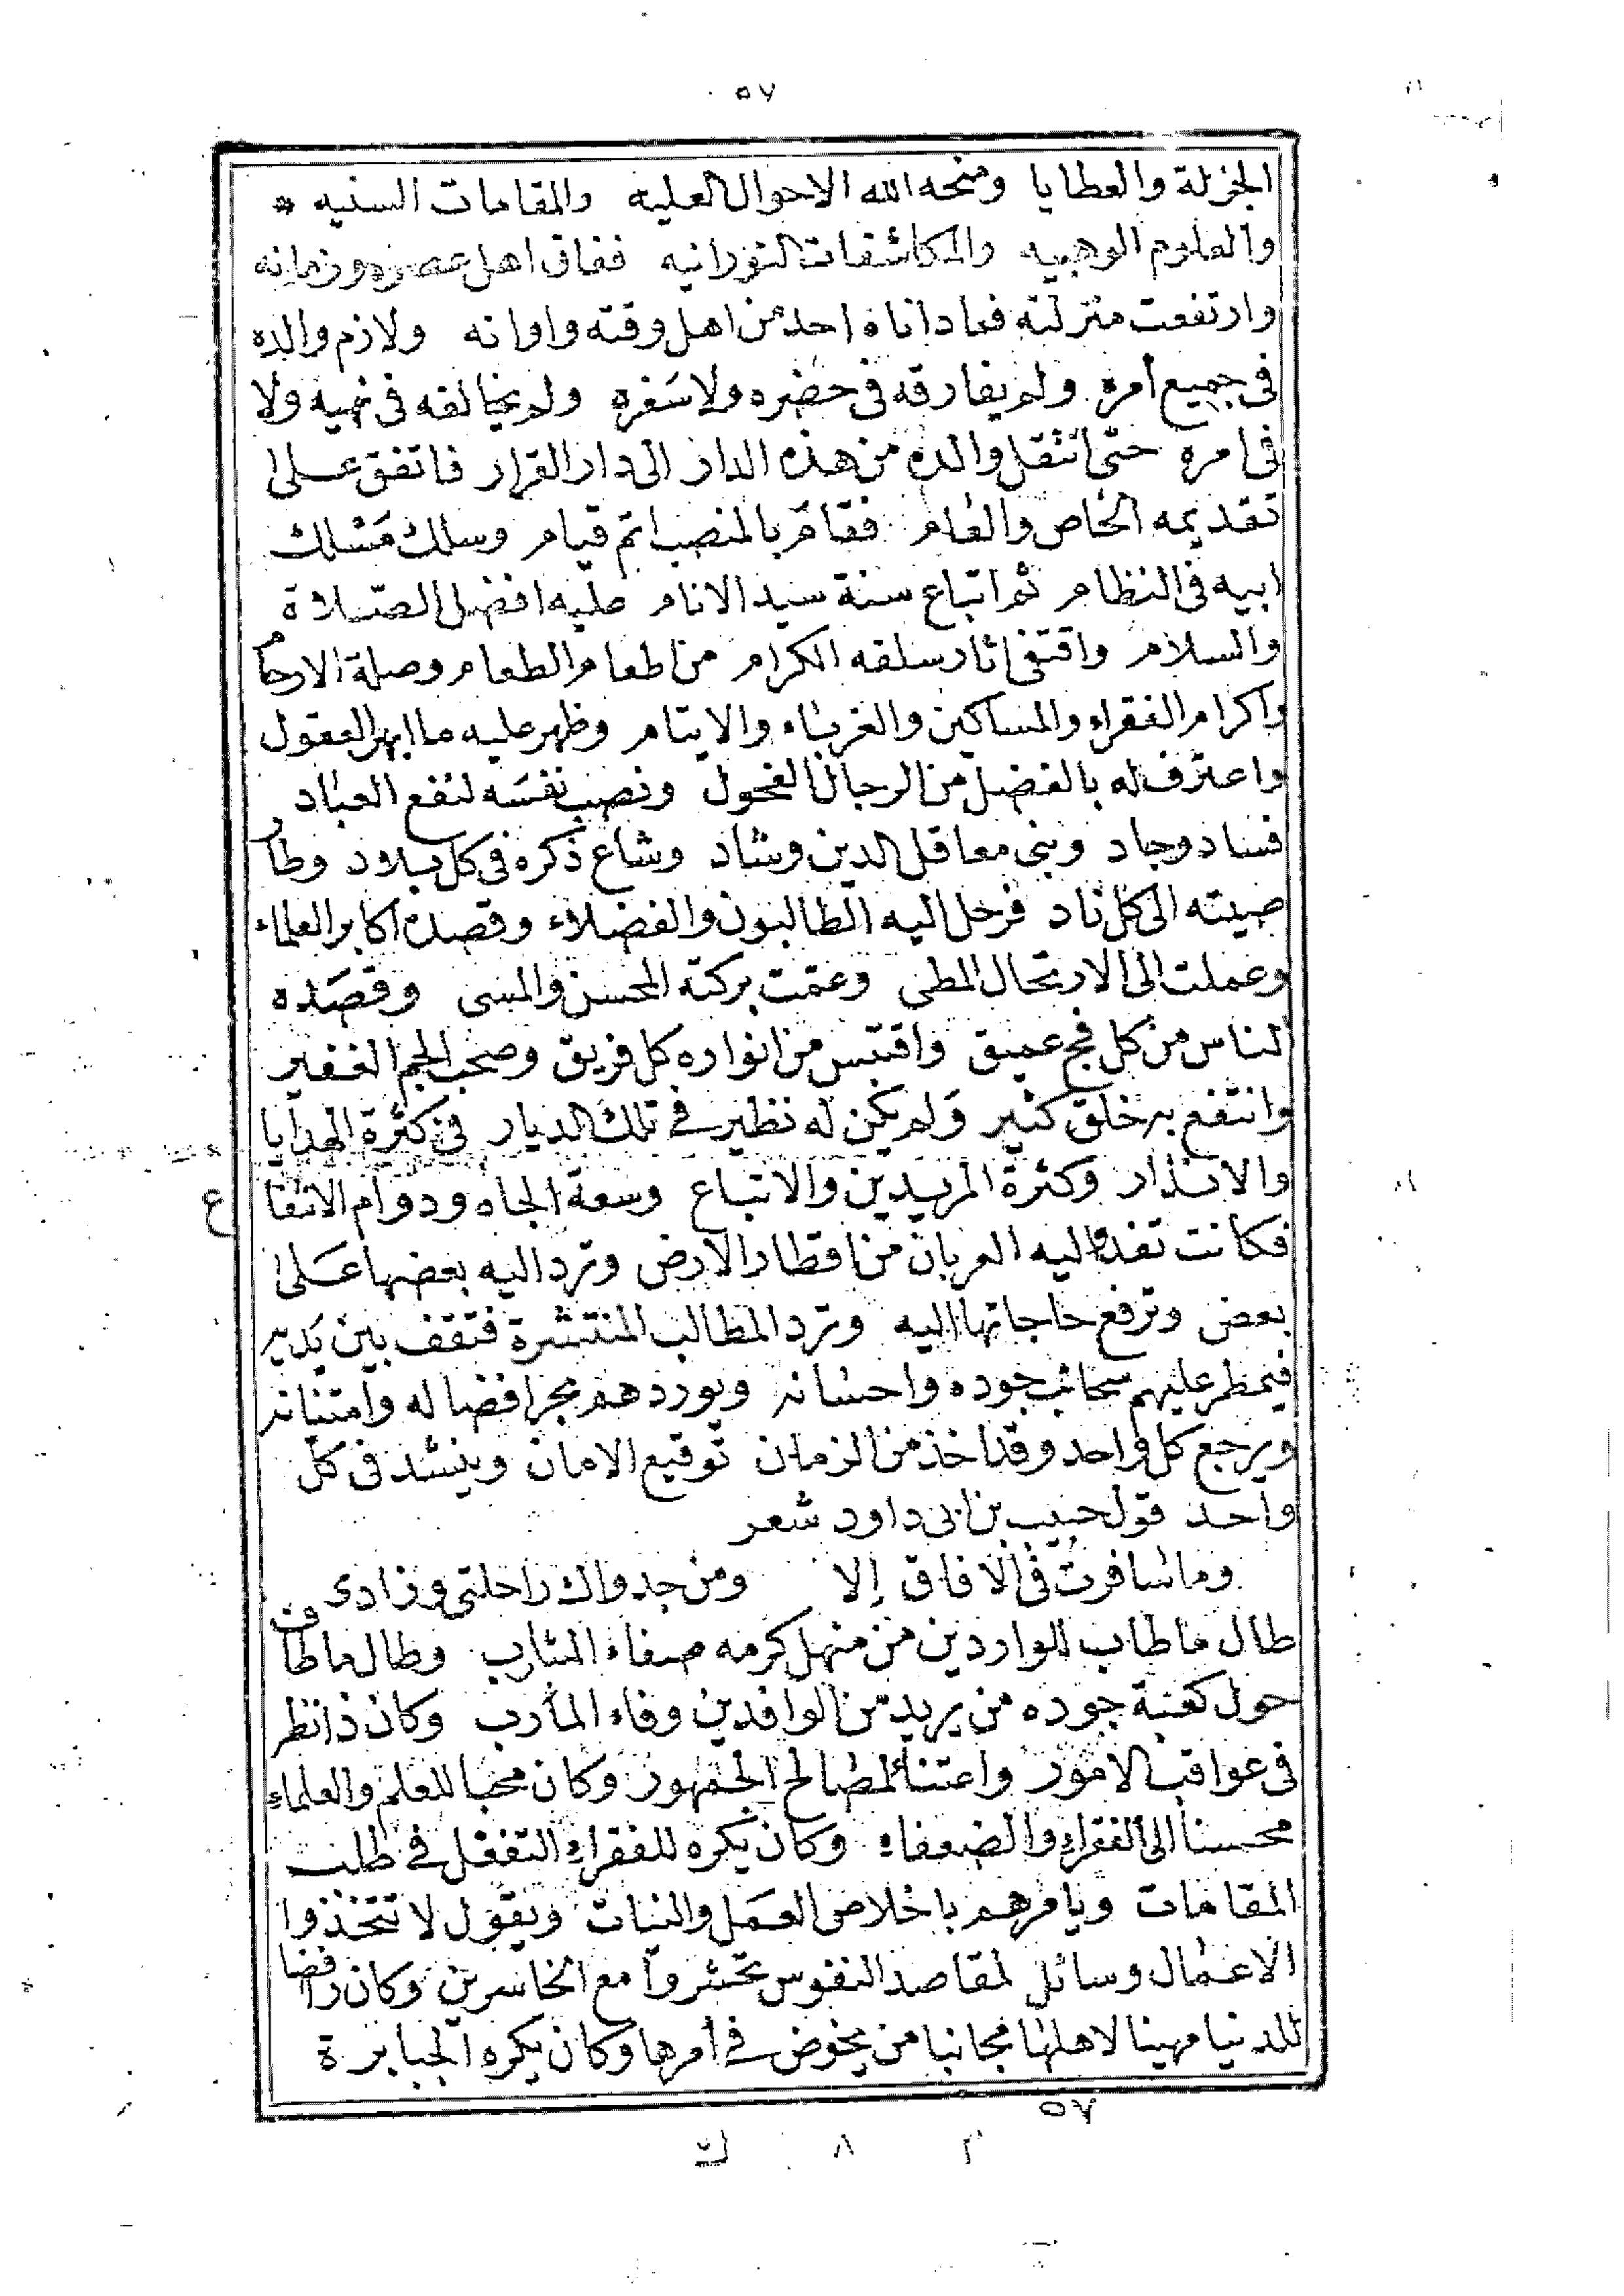 ٥٧
الجزلة والعطايا ومنحه الله الاحوال العليه والمقامات السنيه *
والعلوم الوهبيه والمكاشفات النورانيه ففاق اهل عصره وزمانه
وارتفعت منزلته فما داناه احد من اهل وقته واوانه ولازم والده
في جميع أمره ولم يفارقه في حضره ولا سَفره ولم يخالفه في نهيه ولا
في امره حتى انتقل والده من هذه الدار الى دار القرار فاتفق على
تقديمه الخاص والعام فقام بالمنصب اتم قيام وسلك مَسْلك
ابيه في النظام ثم اتباع سنة سيد الانام عليه افضل الصّلاة
والسلام واقتفى اثار سلفه الكرام من اطعام الطعام وصلة الارحام
واكرام الفقراء والمساكين والغرباء والايتام وظهر عليه ما ابهر العقول
واعترف له بالفضل من الرجال الفحول ونصب نفسَه لنفع العباد
فساد وجاد وبنى معاقل الدين وشاد وشاع ذكره في كل بلاد وطار
صيته الى كل ناد فرحل اليه الطالبون والفضلاء وقصده اكابر العلماء
وعملت الى الارتحال المطي وعمّت بركته المحسن والمسى وقصَده
الناس من كل فج عميق واقتبس من انواره كل فريق وصحب الجم الغفير
وانتفع به خلق كثير وَلم يكن له نظير في تلك الديار في كثرة الهدايا
والانذار وكثرة المريدين والاتباع وسعة الجاه ودوام الانتفاع
فكانت تفد اليه العربان من اقطار الارض وترد اليه بعضها عَلى
بعض وترفع حاجاتها اليه وترد المطالب المنتشرة فتقف بين يَديه
فيمطر عليهم سحائب جوده واحسانه ويوردهم بحر افضاله وامتنانه
ويرجع كل واحد وقد اخذ من الزمان توقيع الامان وينشد في كل
واحد قول حبيب بن ابى داود شعر
وما سافرت في الافاق إلا ومن جدواك راحلتي وزادى
طال ما طاب للواردين من منهل كرمه صفاء المشارب وطال ما طاف
حول كعبة جوده من يريد من الوافدين وفاء المأرب وكان ذا نظر
في عواقب الامور واعتناء لمصالح الجمهور وكان محبا للعلم والعلماء
محسنا الى الفقراء والضعفاء وكان يكره للفقراء التفعل في طلب
المقامات ويامرهم باخلاص العمَل والنيات ويقول لا تتخذوا
الاعمال وسائل لمقاصد النفوس تحشروا مع الخاسرين وكان رافضا
للدنيا مهينا لاهلها مجانبا من يخوض في أمرها وكان يكره الجبابرة
٥٧
٨